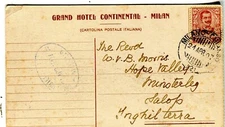 GRAND HOTEL CONTINENTAL - MILAN
(CARTOLINA POSTALE ITALIANA)
The Revd
W. v. B. Morris
Hope Valley
Minsterley
Salop
Inghilterra
MILANO